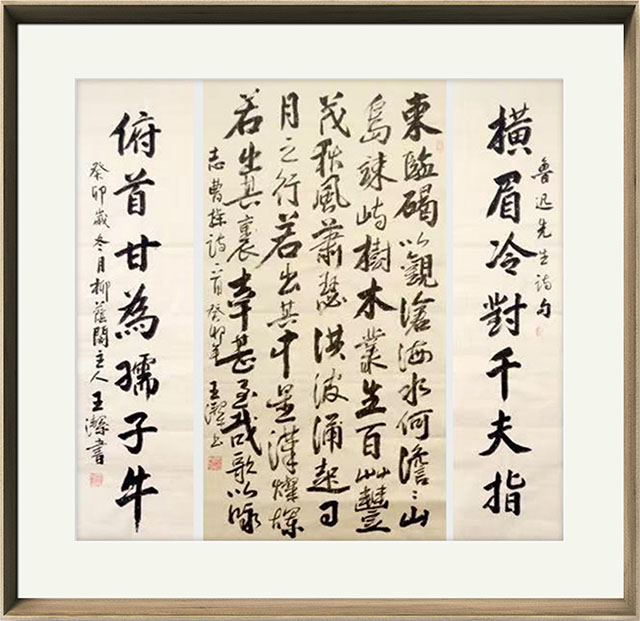 魯迅先生詩句
橫眉冷對千夫指
東臨碣以觀滄海水何澹〻山
島竦峙樹木叢生百艸豐
茂秋風蕭瑟洪波涌起日
月之行若出其中星漢燦爛
若出其裏幸甚至哉歌以詠
志曹操詩一首癸卯年王潔書
俯首甘為孺子牛
癸卯歲冬月柳蔭閣主人王潔書